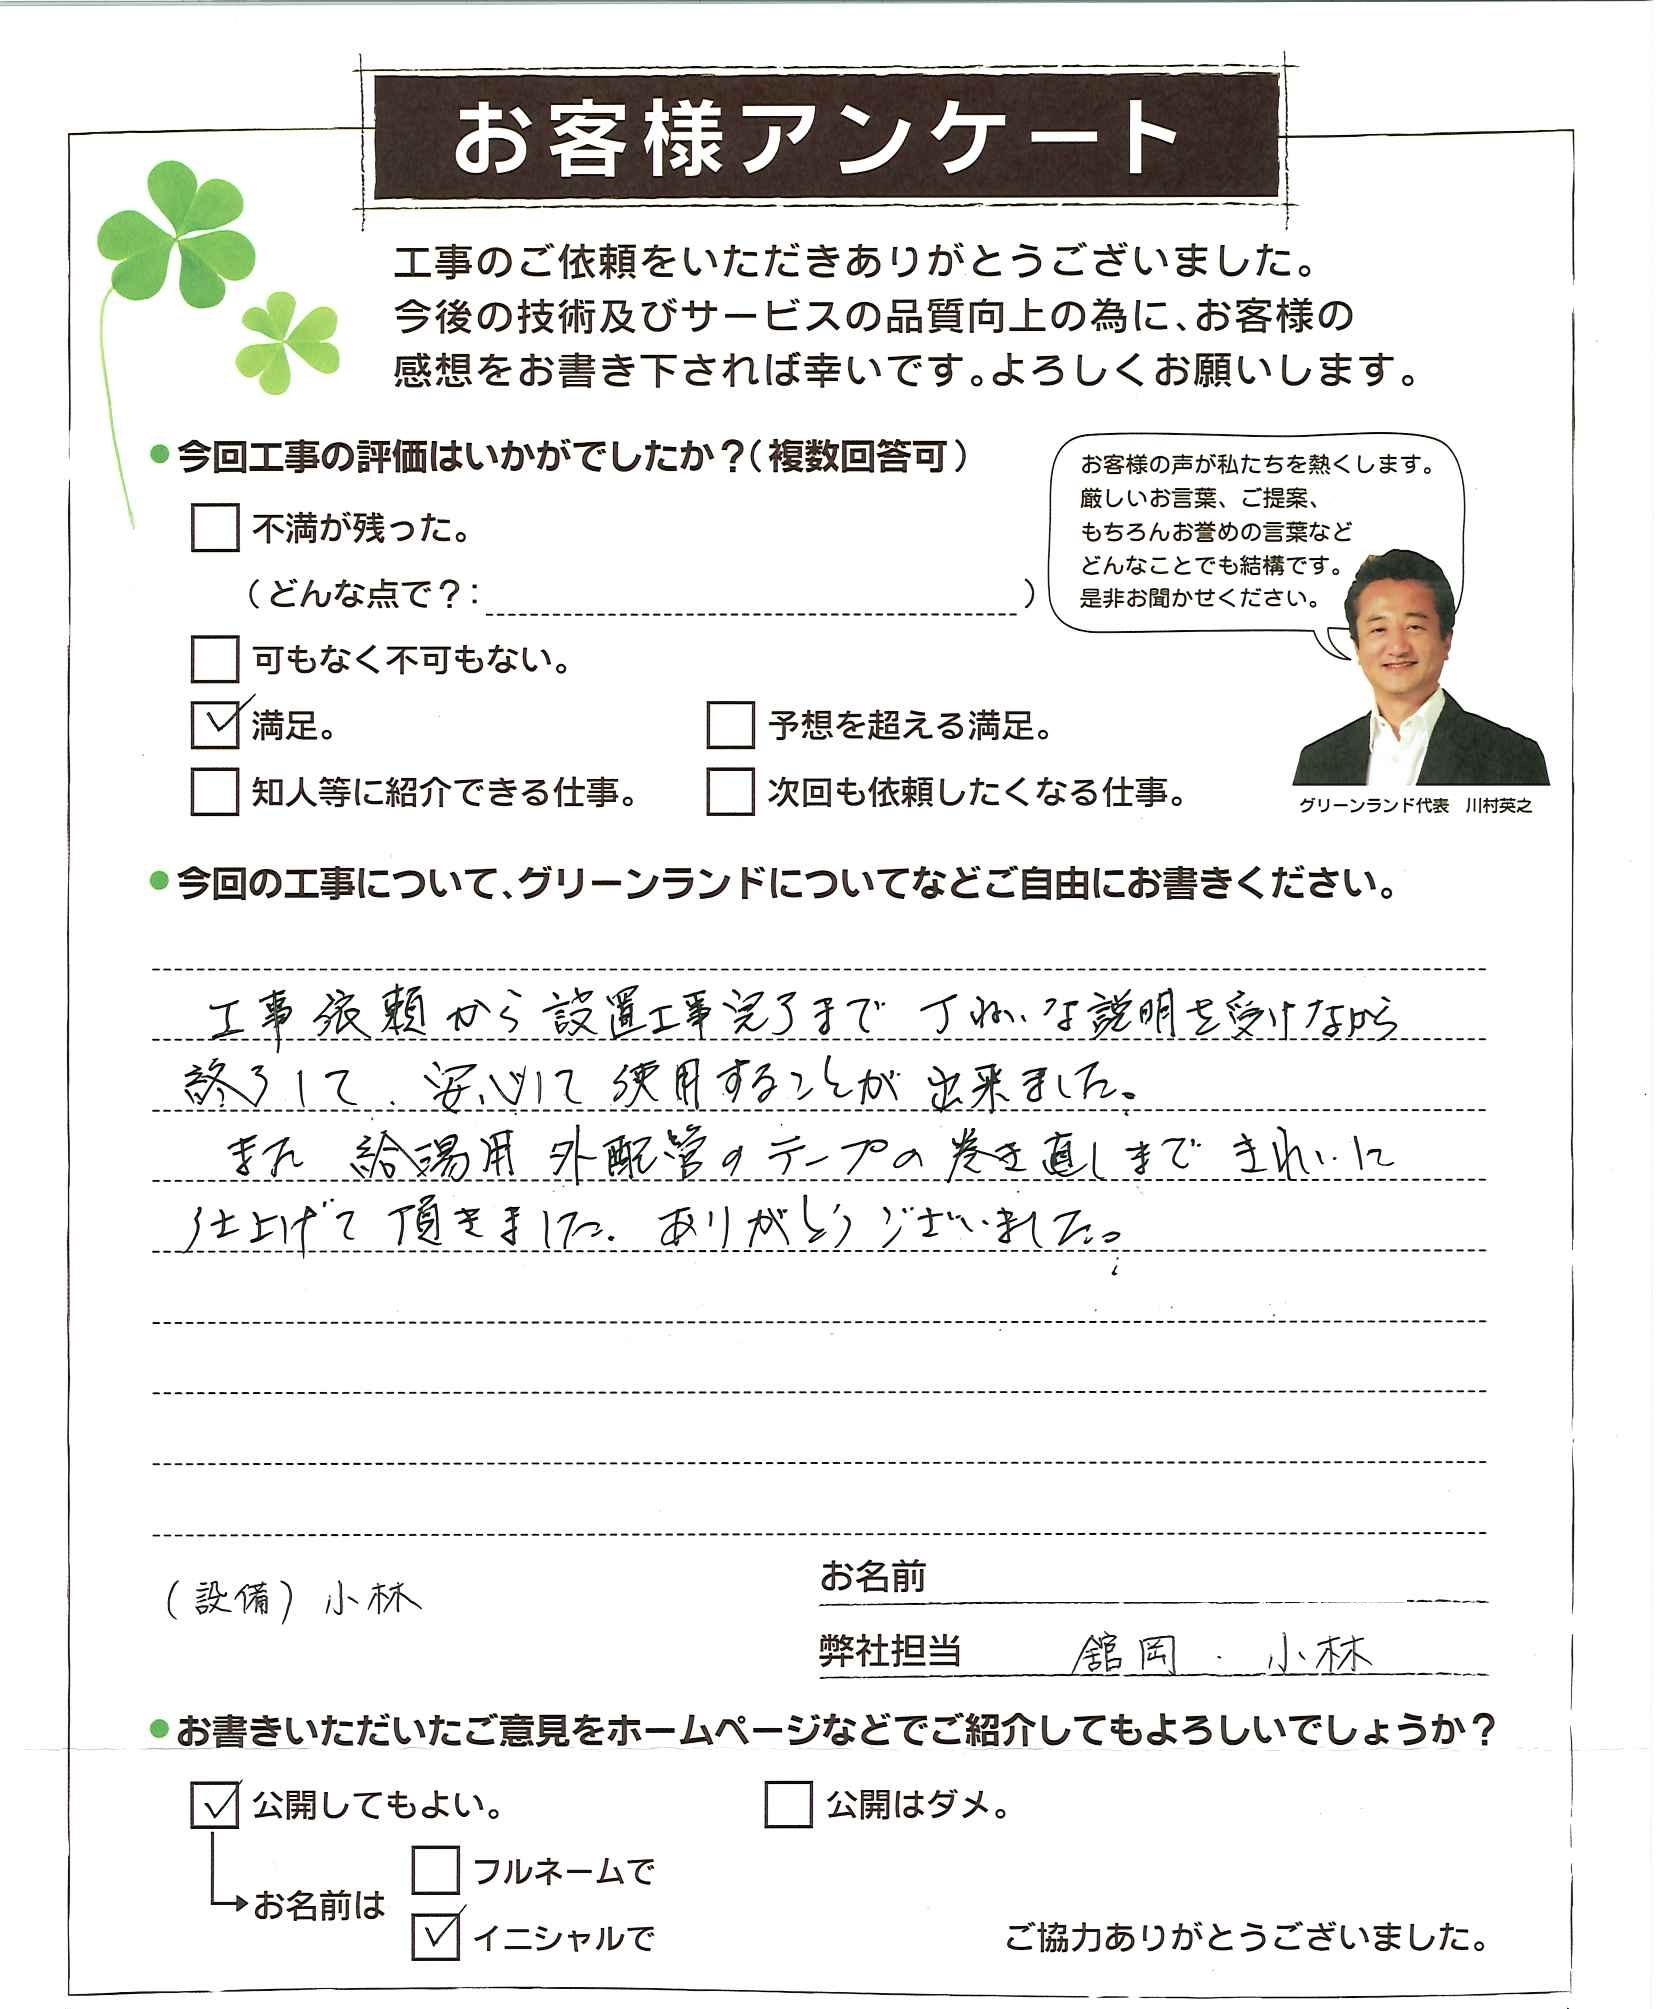 お客様アンケート
工事のご依頼をいただきありがとうございました。
今後の技術及びサービスの品質向上の為に、お客様の
感想をお書き下されば幸いです。よろしくお願いします。
●今回工事の評価はいかがでしたか？（複数回答可）
不満が残った。
（どんな点で？：　）
可もなく不可もない。
満足。
予想を超える満足。
知人等に紹介できる仕事。
次回も依頼したくなる仕事。
お客様の声が私たちを熱くします。
厳しいお言葉、ご提案、
もちろんお誉めの言葉など
どんなことでも結構です。
是非お聞かせください。
グリーンランド代表　川村英之
●今回の工事について、グリーンランドについてなどご自由にお書きください。
工事依頼から設置工事完了まで丁ねいな説明を受けながら
終了して、安心して使用することが出来ました。
また給湯用外配管のテープの巻き直しまできれいに
仕上げて頂きました。ありがとうございました。
（設備）小林
お名前
弊社担当　舘岡．小林
●お書きいただいたご意見をホームページなどでご紹介してもよろしいでしょうか？
公開してもよい。
公開はダメ。
お名前は
フルネームで
イニシャルで
ご協力ありがとうございました。